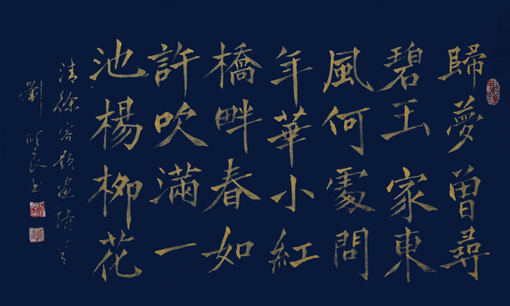 歸夢曾尋
碧玉家東
風何處問
年華小紅
橋畔春如
許吹滿一
池楊柳花
清徐詩
劉良書